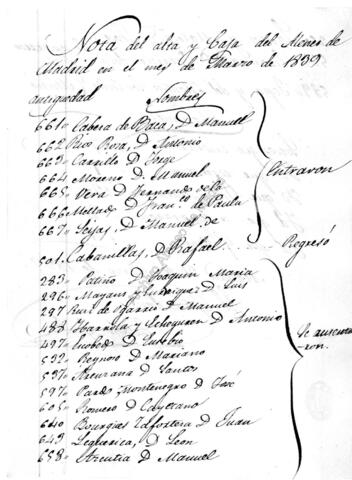 Nota del alta y Baja del Ateneo de
Madrid en el mes de Marzo de 1839
antiguedad Nombres
661 Cabeza de Baca, D. Manuel
662 Rios Rosa, D. Antonio
663 Carrillo D. Jorge
664 Moreno D. Manuel
665 Vera D. Fernando de la
666 Mellado D. Franco. de Paula
667 Seijas D. Manuel de
Entraron
501 Cabanillas, D. Rafael Regresó
283 Patiño D. Joaquin Maria
296 Mayans y Enriquez D. Luis
297 Ruiz de D. Manuel
488 Ibarrola y D. Antonio
497 D. Eusebio
532 Reynoso D. Mariano
537 D. Santos
597 Pardo Montenegro D. José
605 Romero D. Cayetano
640 Bourgias D. Juan
643 Lequerica, D. Leon
658 Azcutia D. Manuel
Se ausenta
ron.